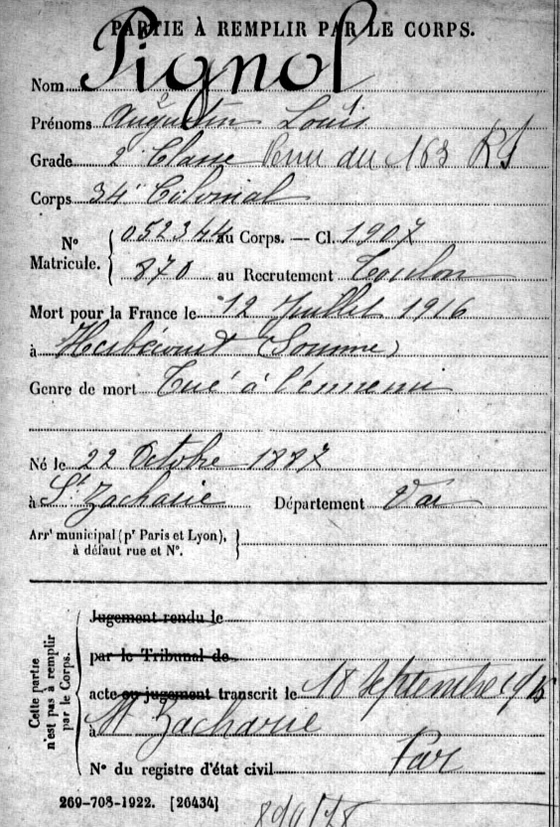 PARTIE À REMPLIR PAR LE CORPS.
Nom Pignol
Prénoms Augustin Louis
Grade 2e Classe Venu du 163 RI
Corps 34e Colonial
N° Matricule. 052344 au Corps. — Cl. 1907
870 au Recrutement Toulon
Mort pour la France le 12 Juillet 1916
à Herbécourt (Somme)
Genre de mort Tué à l'ennemi
Né le 22 Octobre 1887
à St Zacharie Département Var
Arrt municipal (pr Paris et Lyon), à défaut rue et N°.
Cette partie n'est pas à remplir par le Corps.
Jugement rendu le
par le Tribunal de
acte ou jugement transcrit le 18 Septembre
à St Zacharie
Var
N° du registre d'état civil
269-708-1922. [26434]